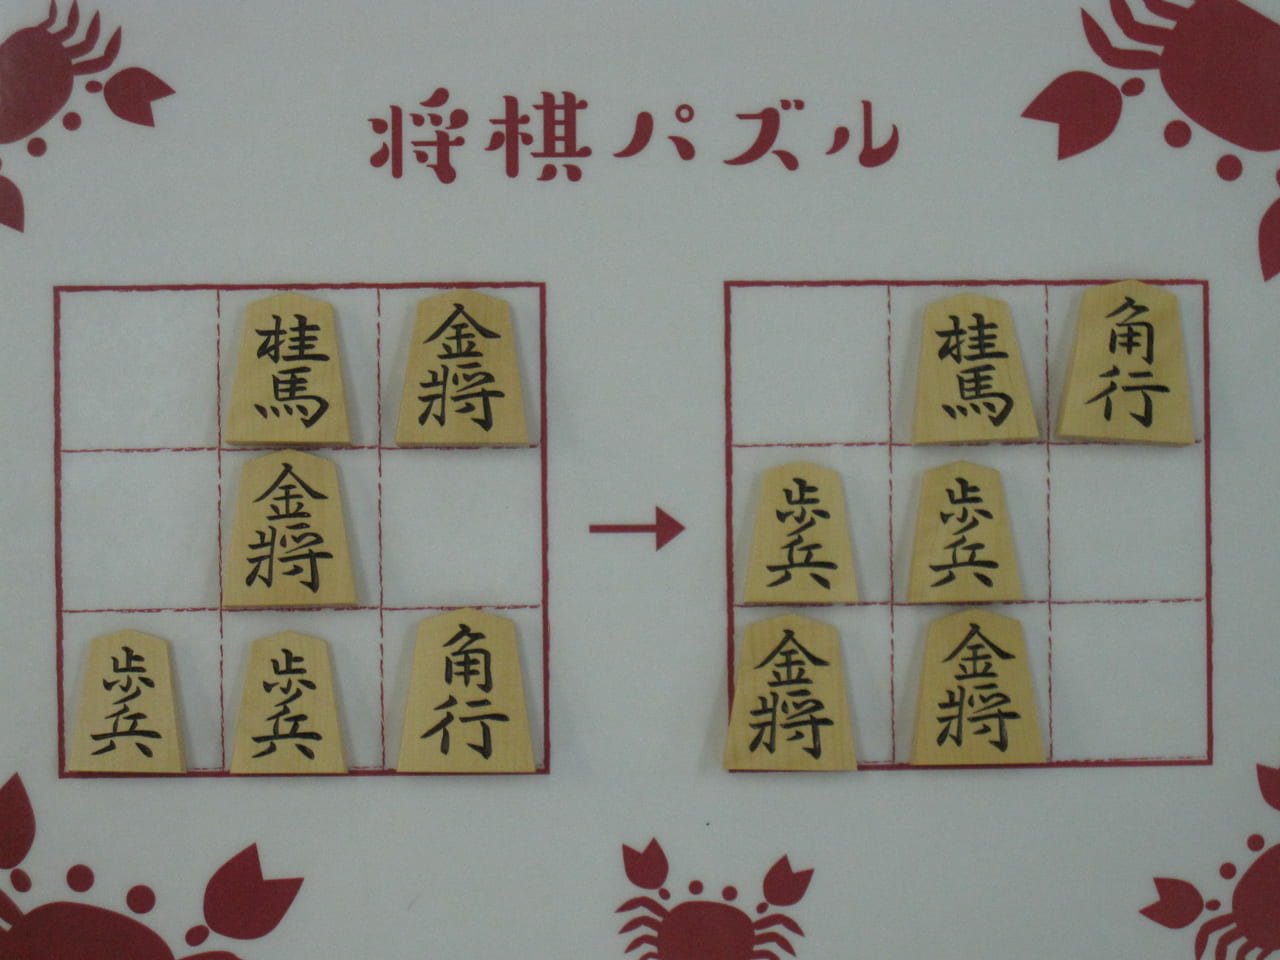 将棋パズル
桂馬 金將 桂馬 角行
金將 歩兵 歩兵
歩兵 歩兵 角行 金將 金將